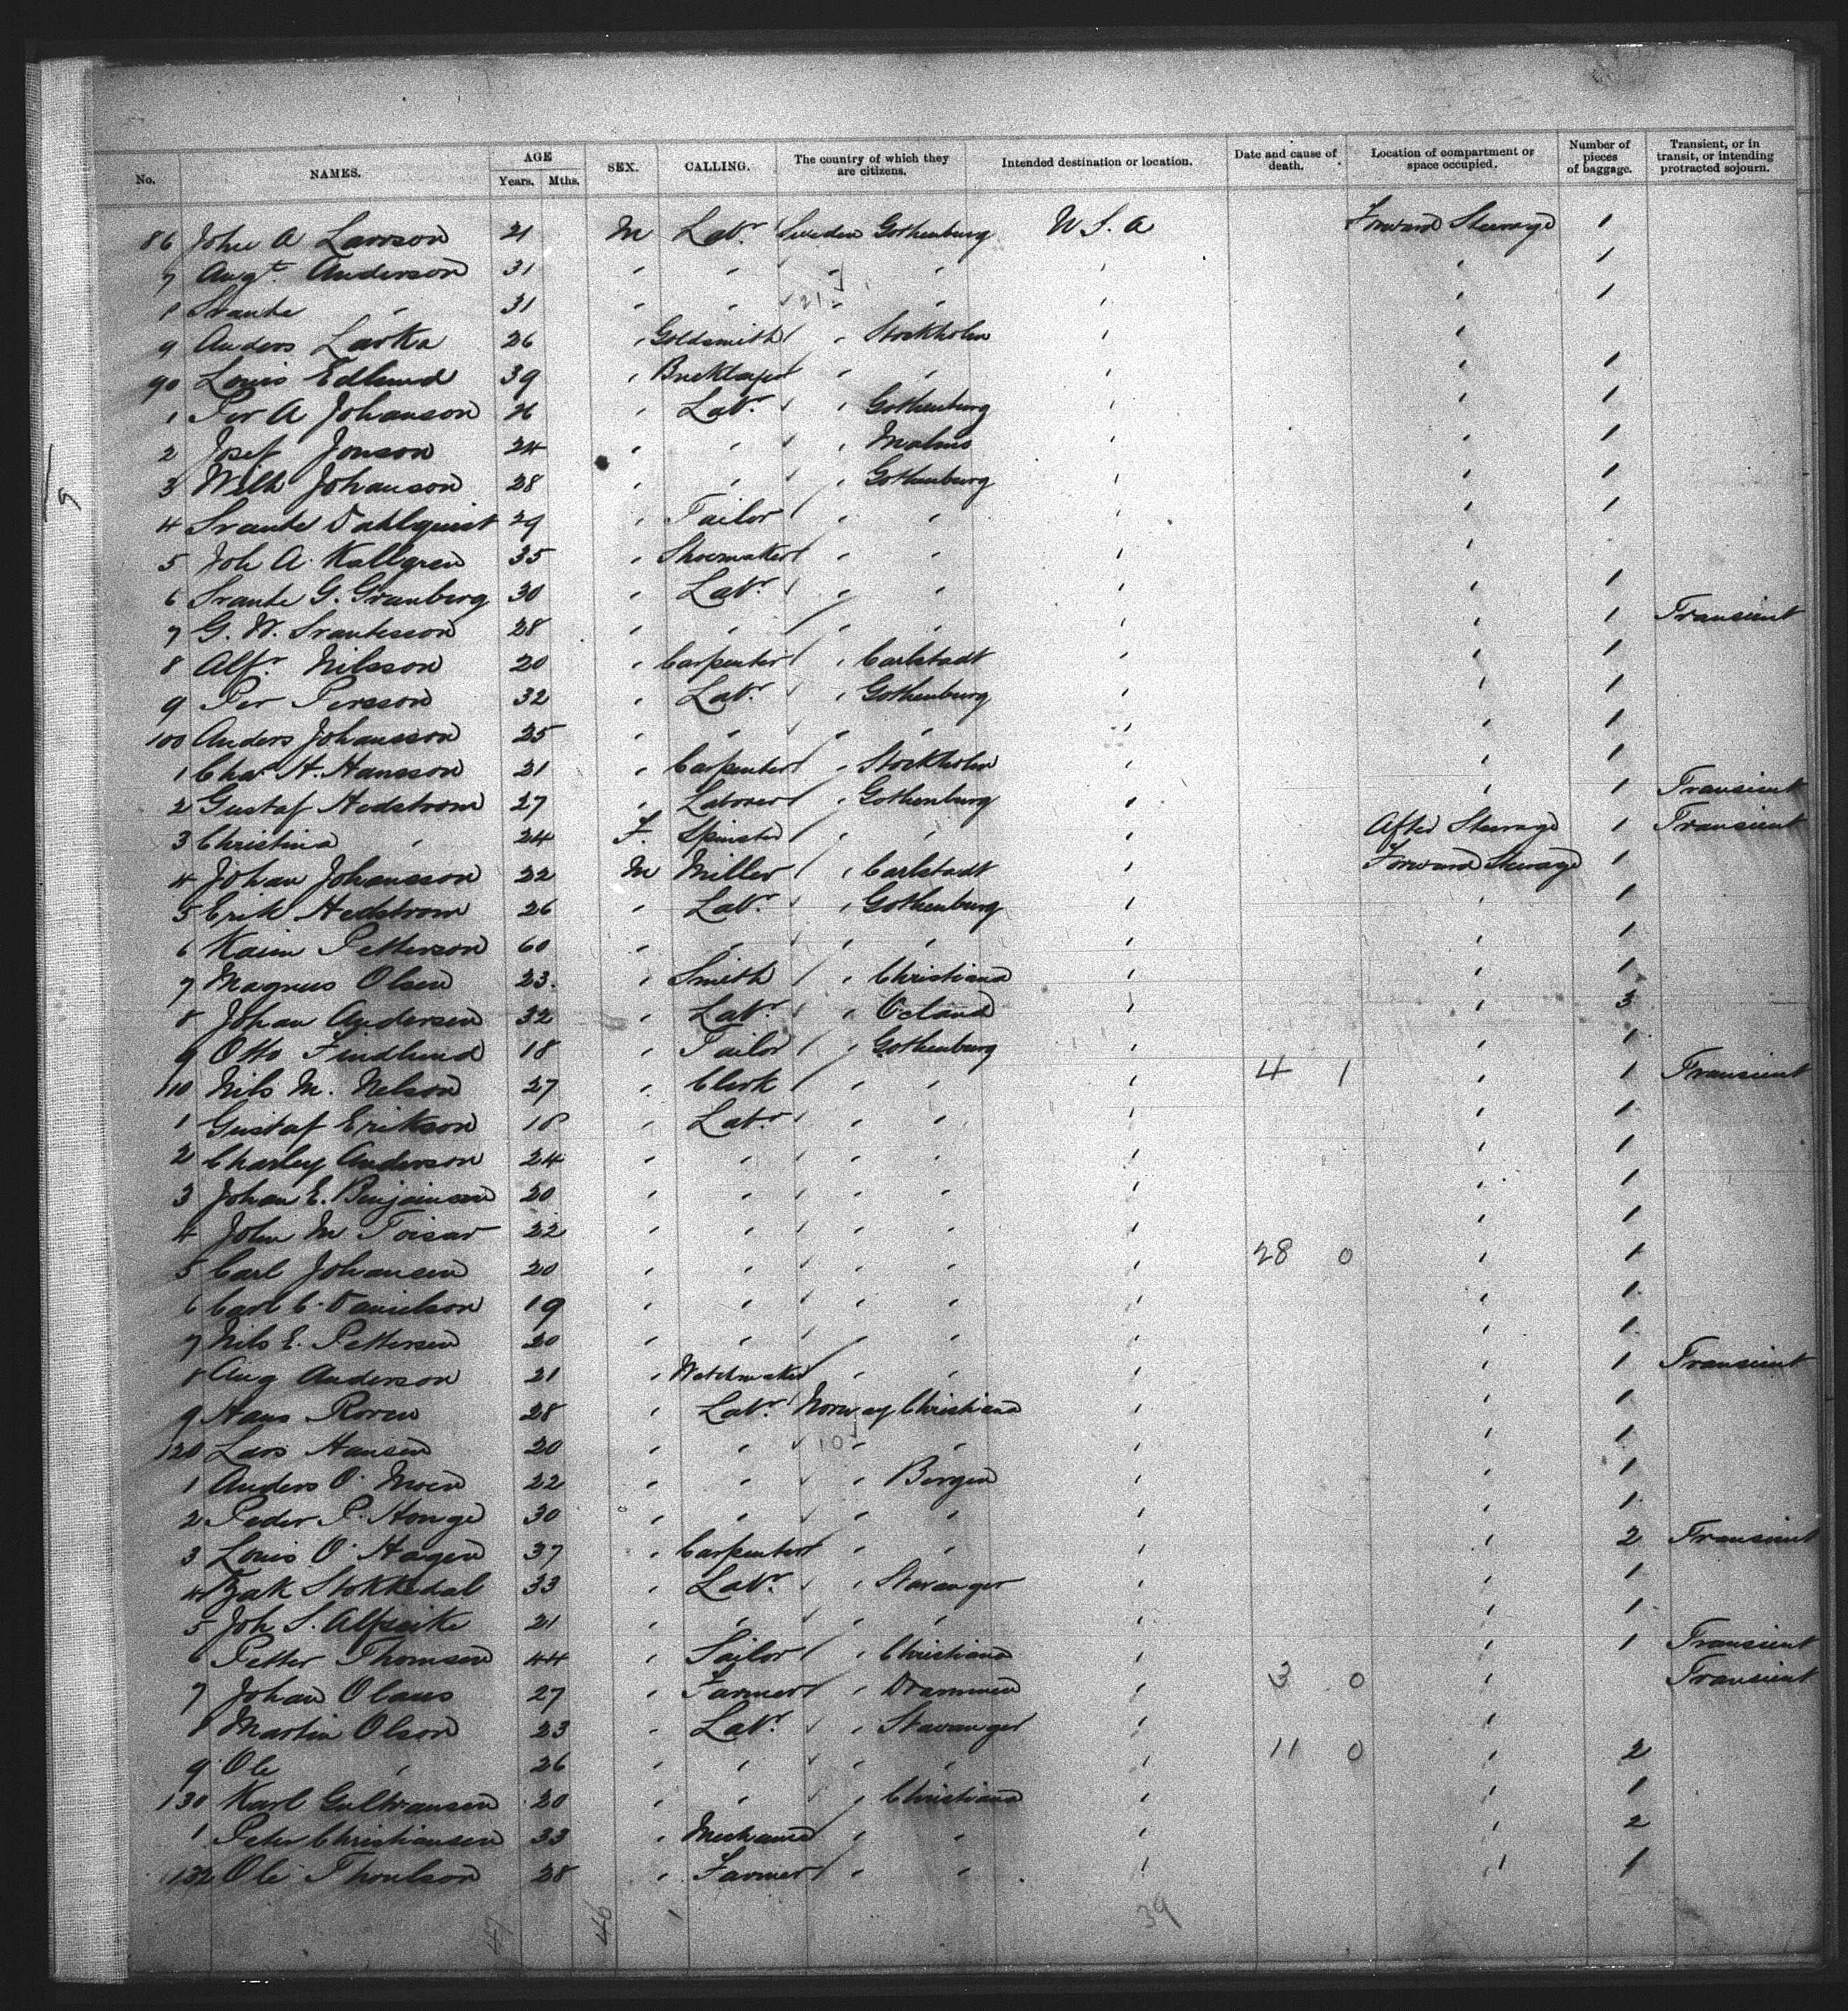 No. NAMES. AGE Years. Mths. SEX. CALLING. The country of which they are citizens. Intended destination or location. Date and cause of death. Location of compartment or space occupied. Number of pieces of baggage. Transient, or in transit, or intending protracted sojourn.
86 John A Larsson 21 M Labr. Sweden Gothenburg U S. A Forward Steerage 1
7 Augt. Anderson 31 " " " " " " 1
8 Svante " 31 " " " " " " 1
9 Anders Larka 26 " Goldsmith " Stockholm " "
90 Louis Edlund 39 " Bricklayer " " " " 1
1 Per A Johanson 26 " Labr. " Gothenburg " " 1
2 Josef Jonson 24 " " " Malmo " " 1
3 Wilh Johanson 28 " " " Gothenburg " " 1
4 Svante Dahlquist 29 " Tailor " " " " 1
5 Joh A. Kallgren 35 " Shoemaker " " " "
6 Svante G. Granberg 30 " Labr. " " " " 1
7 G. W. Svantesson 28 " " " " " " 1 Transient
8 Alfr. Nilsson 20 " Carpenter " Carlstadt " " 1
9 Per Persson 32 " Labr. " Gothenburg " " 1
100 Anders Johansson 25 " " " " " " 1
1 Chas. H. Hansson 21 " Carpenter " Stockholm " " 1
2 Gustaf Hedstrom 27 " Laborer " Gothenburg " " 1 Transient
3 Christina " 24 F. Spinster " " " After Steerage 1 Transient
4 Johan Johansson 22 M Miller " Carlstadt " Forward Steerage 1
5 Erik Hedstrom 26 " Labr. " Gothenburg " " 1
6 Petterson 60 " " " " " " 1
7 Magnus Olsen 23. " Smith " Christiana " " 1
8 Johan Andersen 32 " Labr. " Oeland " " 3
9 Otto Findlund 18 " Tailor " Gothenburg " " 1
110 Nils M. Nelson 27 " Clerk " " " 4 1 " 1 Transient
1 Gustaf Erikson 18 " Labr. " " " " 1
2 Charley Anderson 24 " " " " " " 1
3 Johan E. Benjaminson 20 " " " " " " 1
4 John M 22 " " " " " " 1
5 Carl Johansen 20 " " " " " 28 0 " 1
6 Carl C. Danielson 19 " " " " " " 1
7 Nils E. Pettersen 20 " " " " " " 1
8 Aug Anderson 21 " Watchmaker " " " " 1 Transient
9 Hans Roren 28 " Labr. Norway Christiana " " 1
120 Lars Hansen 20 " " 10 " " " " 1
1 Anders O. Moen 22 " " " Bergen " " 1
2 Peder P. Honge 30 " " " " " " 1
3 Louis O. Hagen 37 " Carpenter " " " " 2 Transient
4 Stokkedal 33 " Labr. " Stavanger " " 1
5 Joh S. 21 " " " " " " 1
6 Petter Thomsen 44 " Sailor " Christiana " " 1 Transient
7 Johan Olaus 27 " Farmer " Drammen " 3 0 " Transient
8 Martin Olson 23 " Labr. " Stavanger " "
9 Ole " 26 " " " " " 11 0 " 2
130 Karl 20 " " " Christiana " " 1
1 Peter Christiansen 33 " Mechanic " " " " 2
132 Ole Thoulson 28 " Farmer " " " " 1
47 46 39